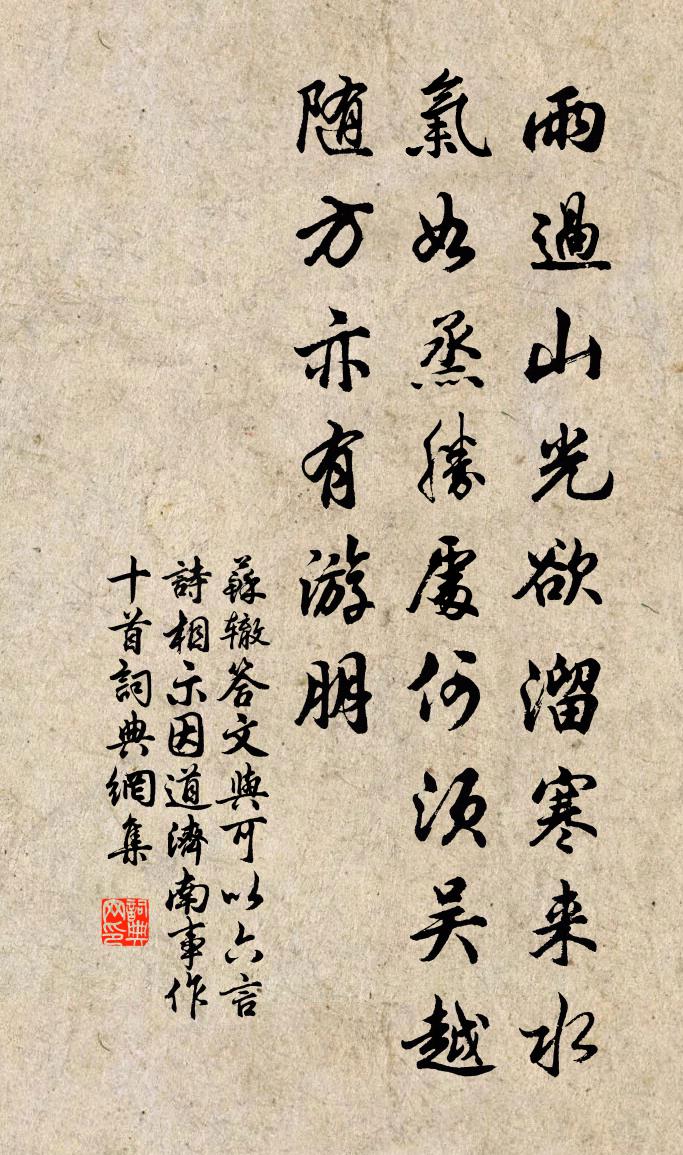 雨過山光欲溜寒来水
氣如蒸勝處何須吴越
随方亦有游朋
蘇辙答文與可以六言
詩相示因道濟南事作
十首詞典網集
詞典
网印